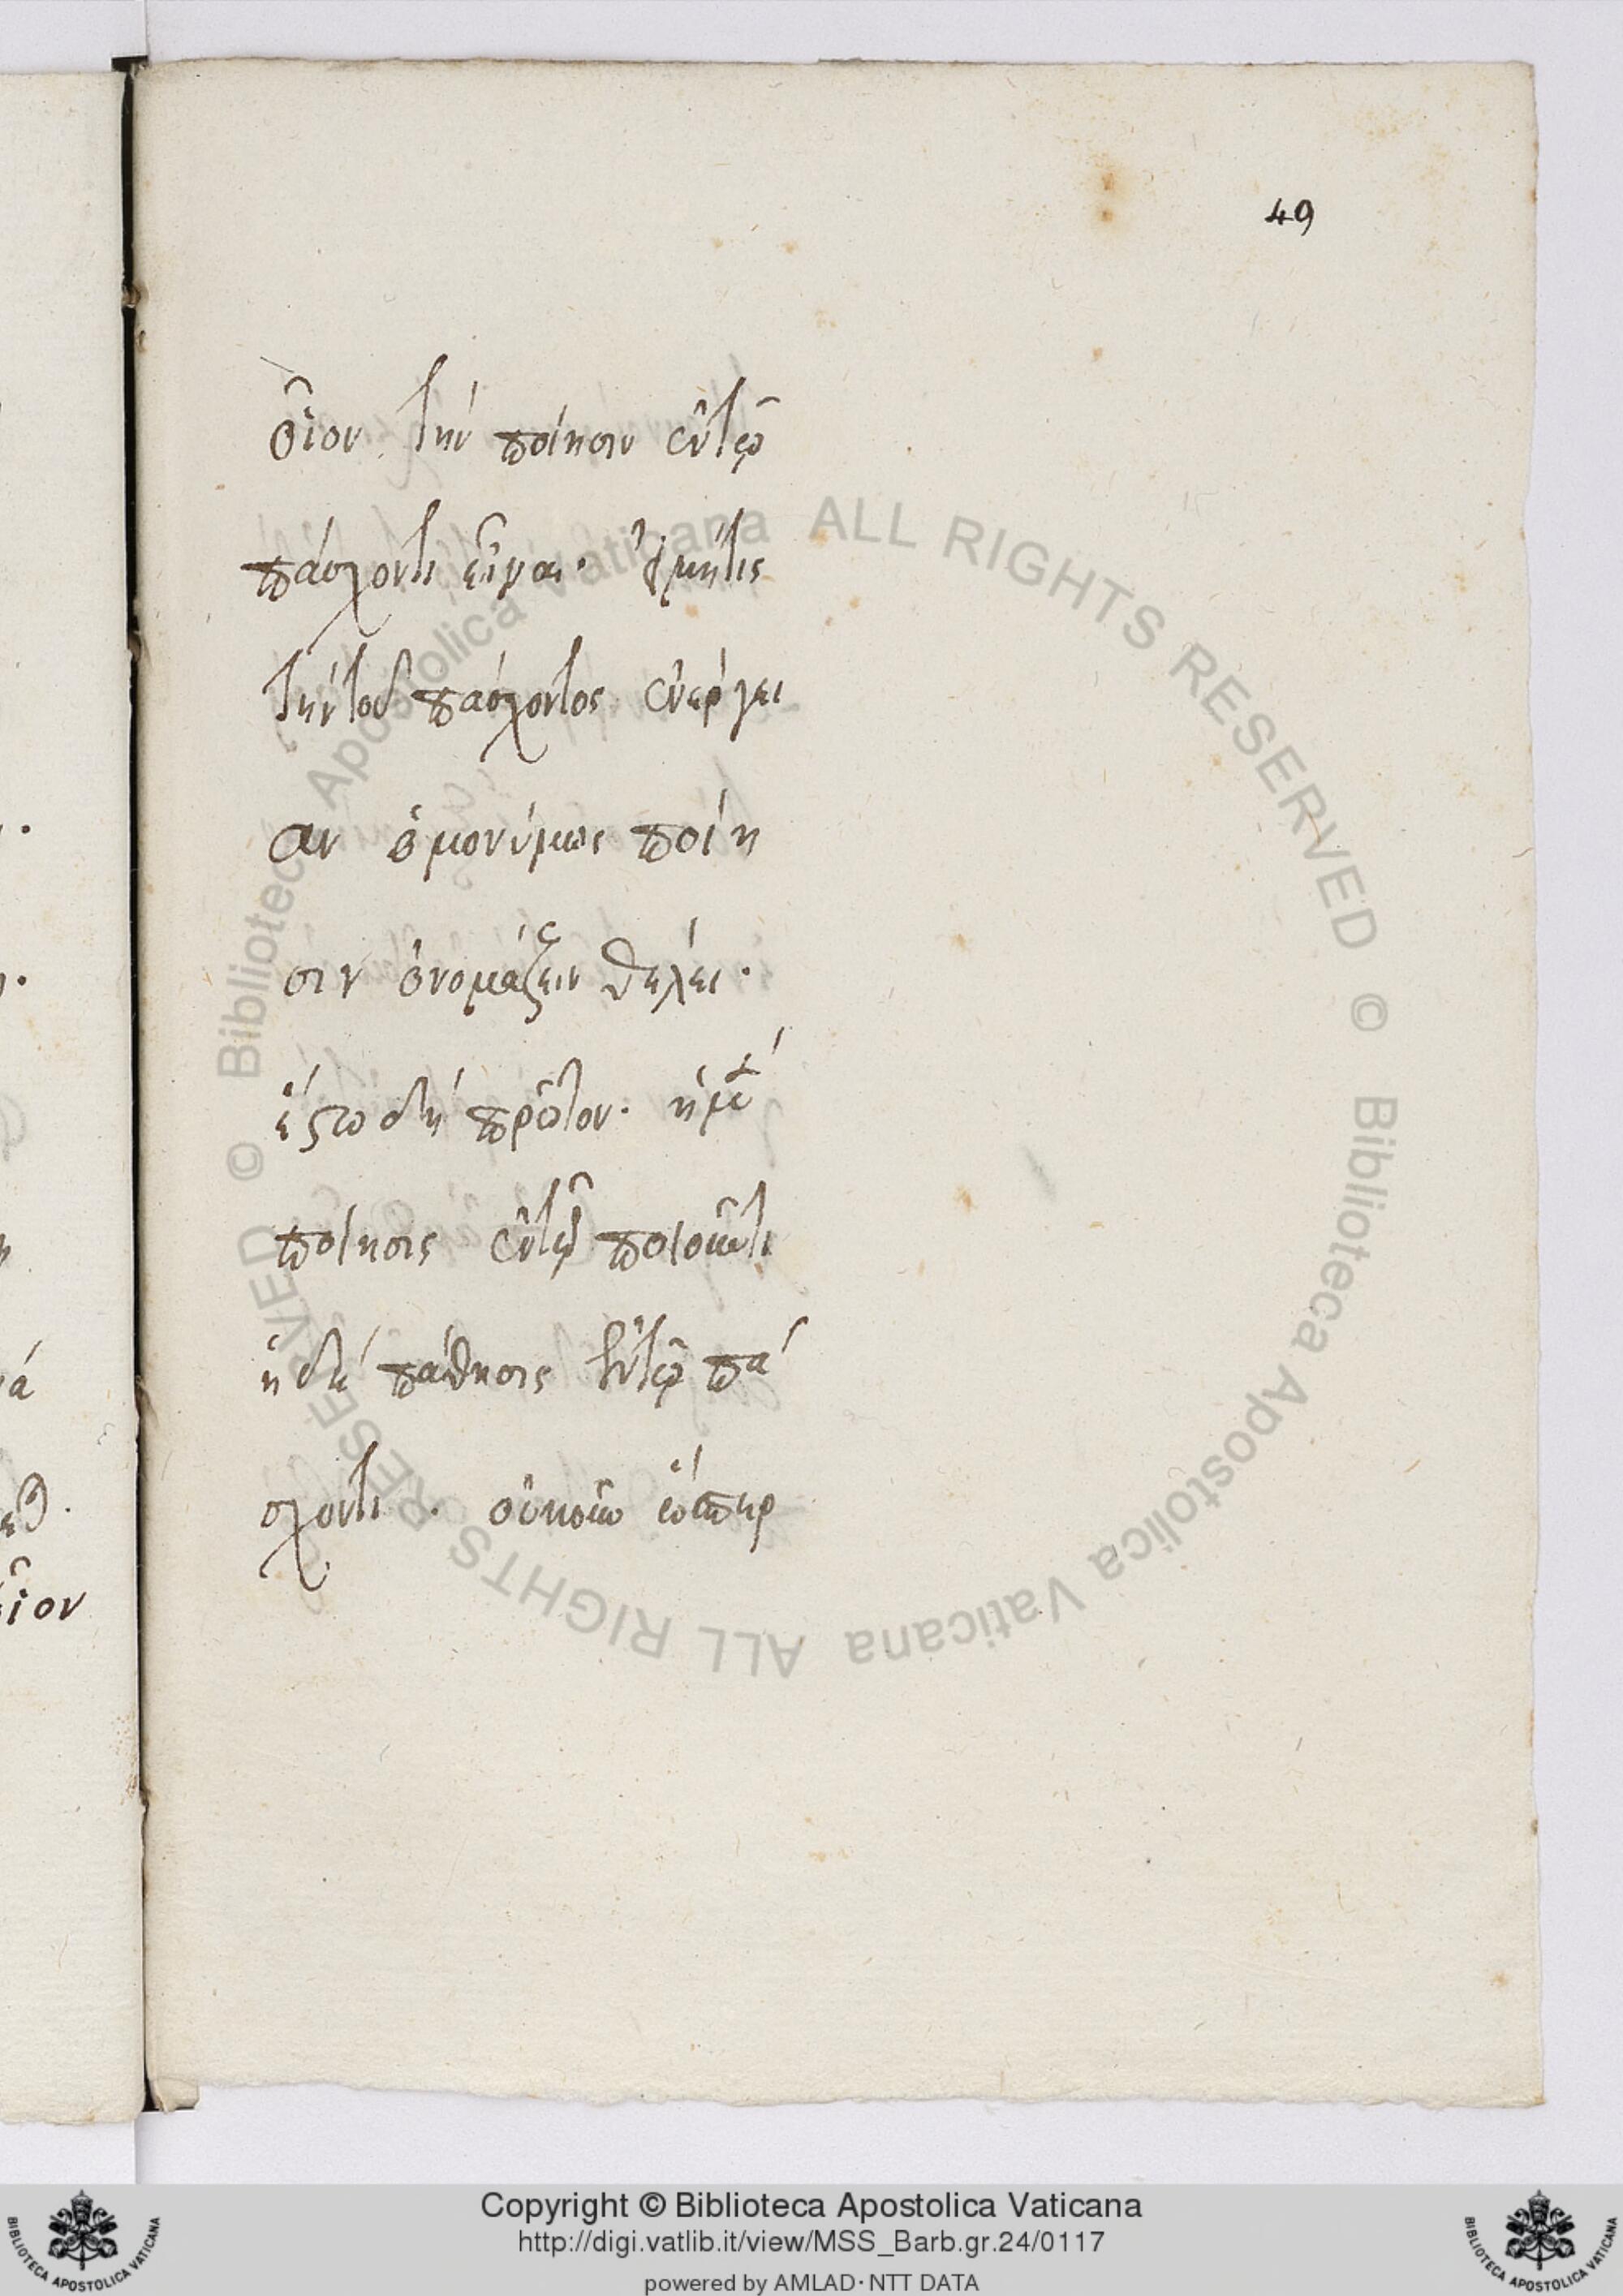 49
οἷον τὴν ποίησιν ἐν τῷ
πάσχοντι εἶναι· εἰ μή τις
τὴν τοῦ πάσχοντος ἐνέργει
αν ὁμονύμως ποίη
σιν ὀνομάζειν θέλει·
ἔστω δὴ πρῶτον· ἡ μὲν
ποίησις ἐν τῷ ποιοῦντι
ἡ δὲ πάθησις ἐν τῷ πά
σχοντι · οὐκοῦν ὥσπερ
Copyright © Biblioteca Apostolica Vaticana
http://digi.vatlib.it/view/MSS_Barb.gr.24/0117
powered by AMLAD·NTT DATA
© Biblioteca Apostolica Vaticana ALL RIGHTS RESERVED © Biblioteca Apostolica Vaticana ALL RIGHTS RESERVED
BIBLIOTECA APOSTOLICA VATICANA
BIBLIOTECA APOSTOLICA VATICANA